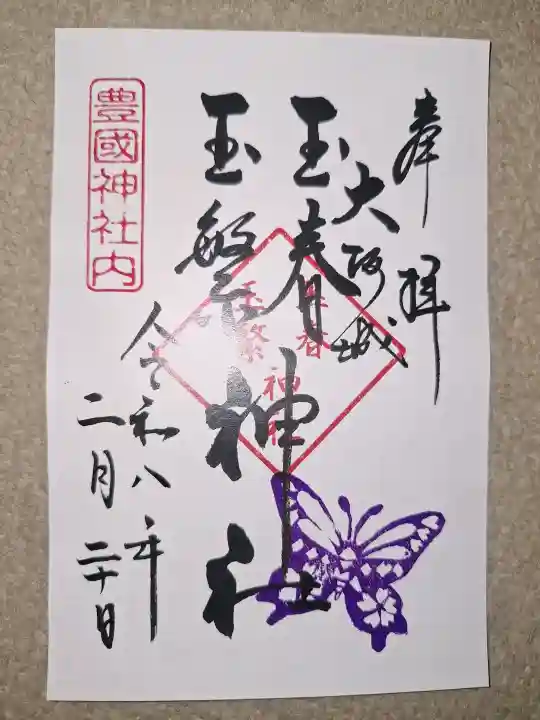 奉拝
大阪城
玉春
玉繁
神社
玉春
玉繁
神社
豊國神社内
令和八年
二月二十日